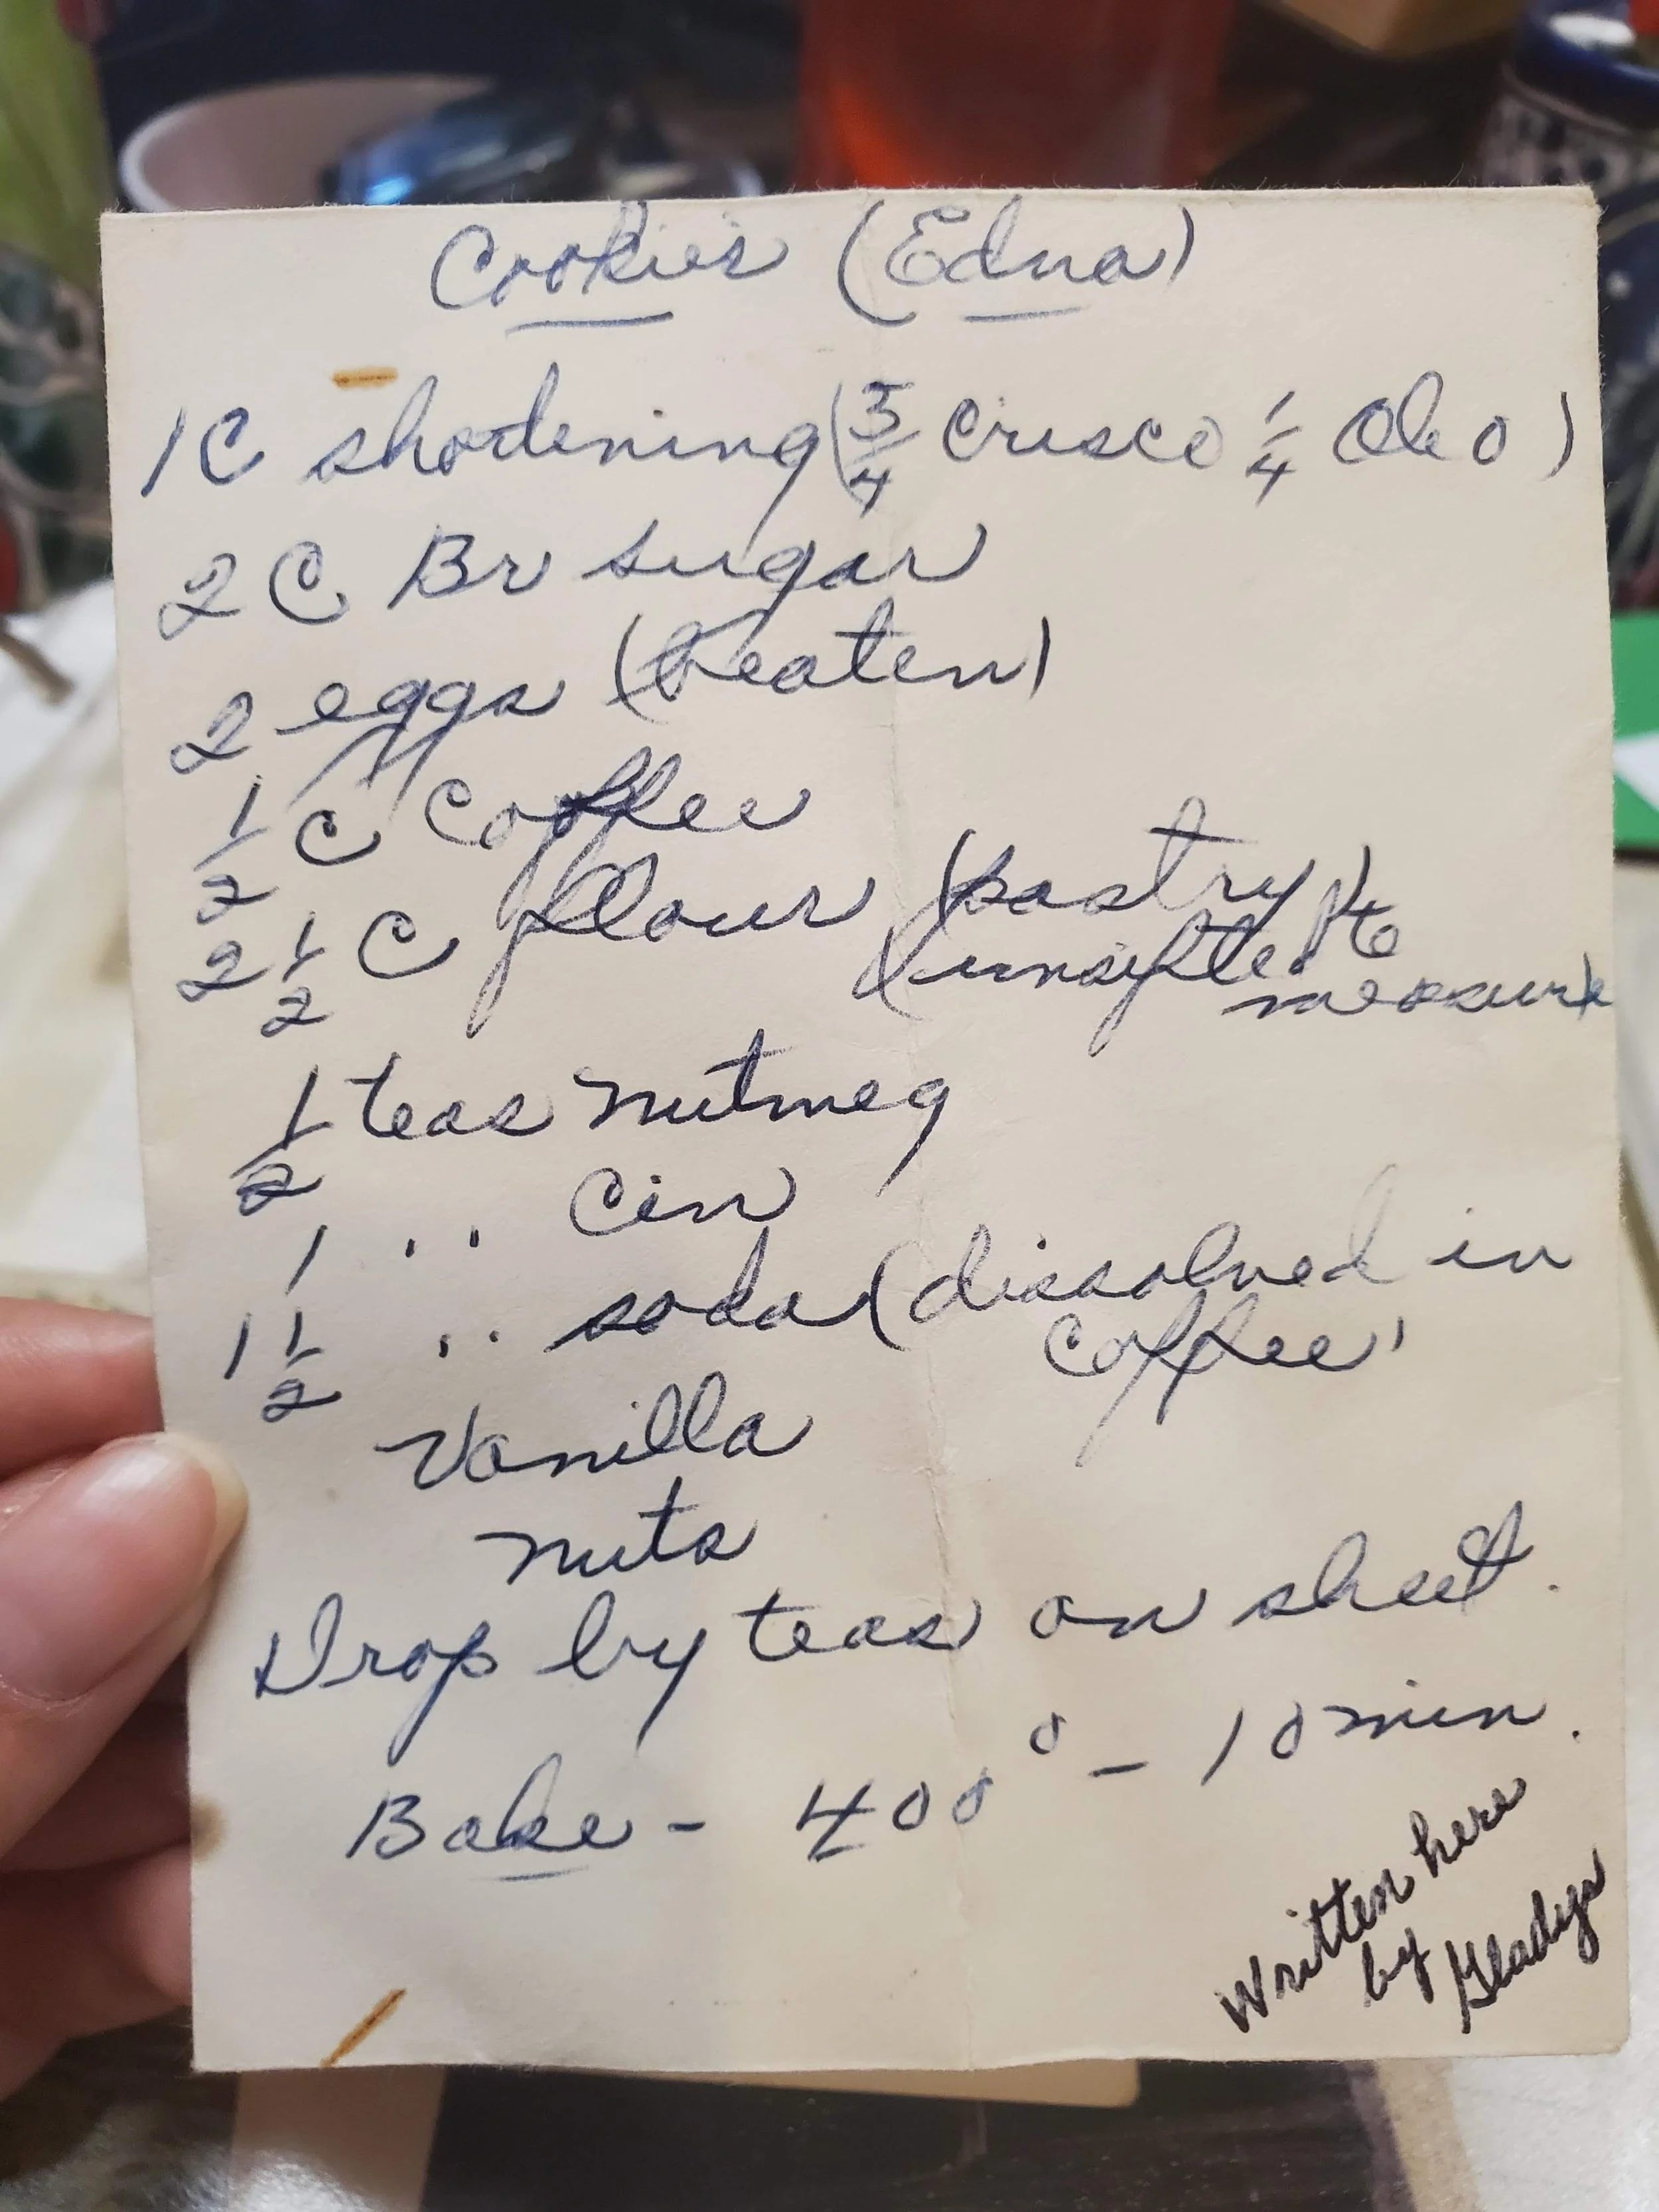 Cookies (Edna)
1C shortening (3/4 Crisco 1/4 Oleo)
2 C Br sugar
2 eggs (beaten)
1/2 C Coffee
2 1/2 C flour (pastry)
(unsifted to
measure)
1/2 teas nutmeg
1 " Cin
1 1/2 " soda (dissolved in
Coffee)
Vanilla
nuts
Drop by teas on sheet.
Bake - 400° - 10 min.
Written here
by Gladys